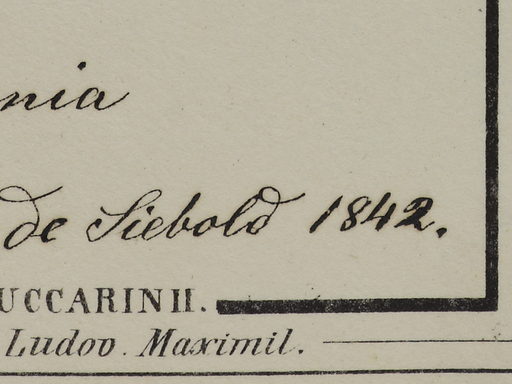 nia
de Siebold 1842.
UCCARINII.
Ludov. Maximil.